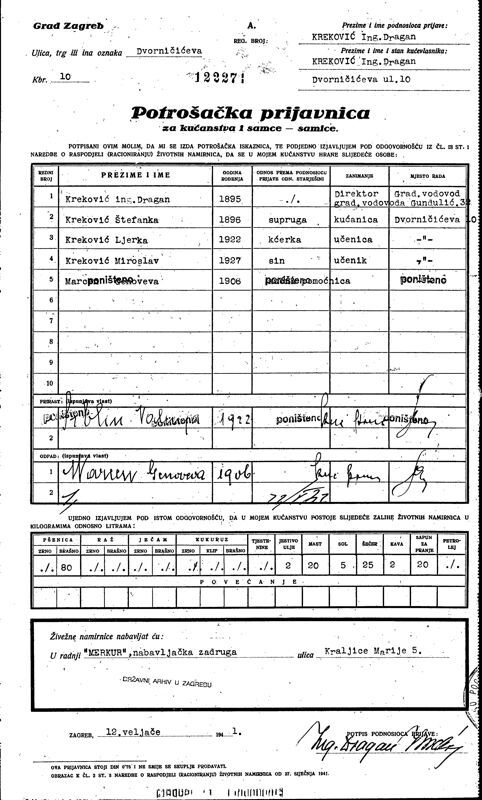 Grad Zagreb
A.
REG. BROJ:
Prezime i ime podnosioca prijave:
KREKOVIĆ Ing.Dragan
Ulica, trg ili ina oznaka Dvorničićeva
Prezime i ime i stan kućevlasnika:
KREKOVIĆ Ing.Dragan
Kbr. 10
122271
Dvorničićeva ul.10
Potrošačka prijavnica
za kućanstva i samce — samice.
POTPISANI OVIM MOLIM, DA MI SE IZDA POTROŠAČKA ISKAZNICA, TE PODJEDNO IZJAVLJUJEM POD ODGOVORNOŠĆU IZ ČL. 15 ST. 1
NAREDBE O RASPODJELI (RACIONIRANJU) ŽIVOTNIH NAMIRNICA, DA SE U MOJEM KUĆANSTVU HRANE SLIJEDEĆE OSOBE:
REDNI BROJ PREZIME I IME GODINA ROĐENJA ODNOS PREMA PODNOSIOCU PRIJAVE ODN. STARJEŠINI ZANIMANJE MJESTO RADA
1 Kreković ing.Dragan 1895 ./. Direktor grad.vodovoda Grad.vodovod Gundulić.32
2 Kreković Štefanka 1896 supruga kućanica Dvorničićeva 10
3 Kreković Ljerka 1922 kćerka učenica -"-
4 Kreković Miroslav 1927 sin učenik -"-
5 Genoveva poništeno 1906 poništeno pomoćnica poništeno
6
7
8
9
10
PRIRAST: (ispunjava vlast)
1 1922 poništeno poništeno
2
ODPAD: (ispunjava vlast)
1 Genoveva 1906
2
UJEDNO IZJAVLJUJEM POD ISTOM ODGOVORNOŠĆU, DA U MOJEM KUĆANSTVU POSTOJE SLIJEDEĆE ZALIHE ŽIVOTNIH NAMIRNICA U
KILOGRAMIMA ODNOSNO LITRAMA:
PŠENICA RAŽ JEČAM KUKURUZ TJESTENINE JESTIVO ULJE MAST SOL ŠEĆER KAVA SAPUN ZA PRANJE PETROLEJ
ZRNO BRAŠNO ZRNO BRAŠNO ZRNO BRAŠNO ZRNO KLIP BRAŠNO
./. 80 ./. ./. ./. ./. ./. ./. ./. ./. 2 20 5 25 2 20 ./.
POVEĆANJE
Živežne namirnice nabavljat ću:
U radnji "MERKUR",nabavljačka zadruga ulica Kraljice Marije 5.
DRŽAVNI ARHIV U ZAGREBU
ZAGREB, 12.veljače 194 1.
POTPIS PODNOSIOCA PRIJAVE:
Ing. Dragan
OVA PRIJAVNICA STOJI DIN 0'75 I NE SMIJE SE SKUPLJE PRODAVATI.
OBRAZAC K ČL. 2 ST. 2 NAREDBE O RASPODJELI (RACIONIRANJU) ŽIVOTNIH NAMIRNICA OD 27. SIJEČNJA 1941.